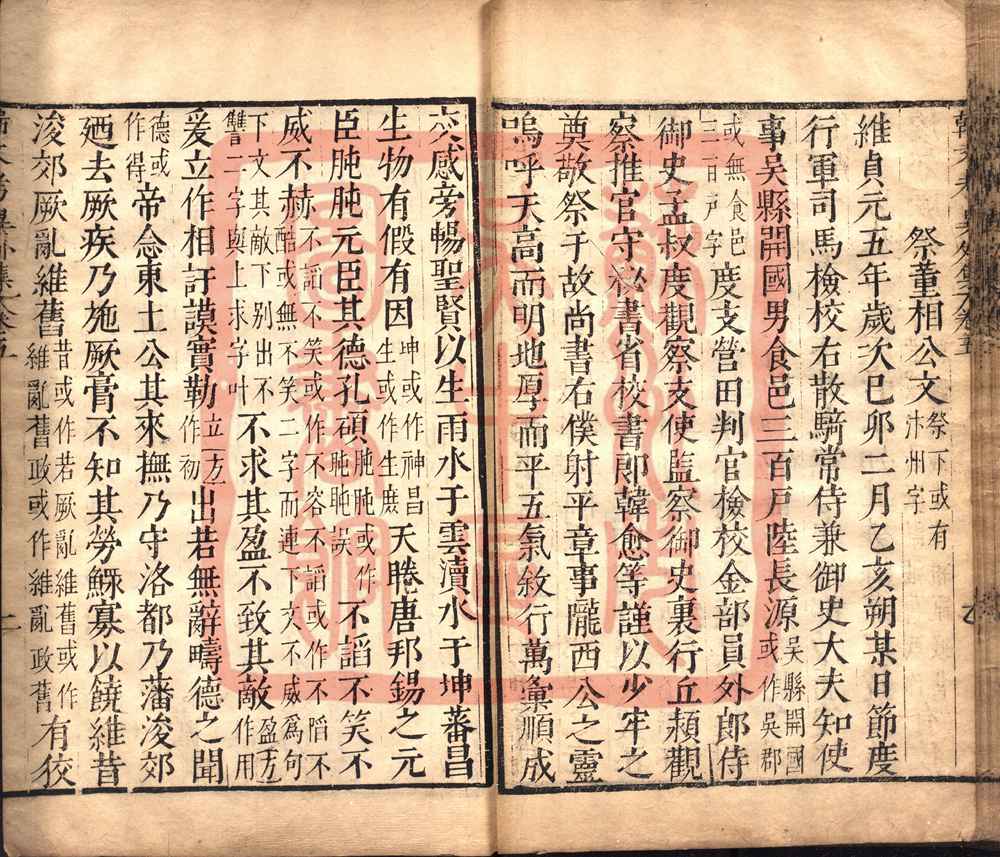 祭董相公文 祭下或有
汴州字
維貞元五年歲次巳卯二月乙亥朔某日節度
行軍司馬檢校右散騎常侍兼御史大夫知使
事吳縣開國男食邑三百戸陸長源 吳縣開國
或作吳郡
或無食邑
三百戸字 度支營田判官檢校金部員外郎侍
御史孟叔度觀察支使監察御史裏行丘熲觀
察推官守秘書省校書郎韓愈等謹以少牢之
奠敬祭于故尚書右僕射平章事隴西公之靈
嗚呼天高而明地厚而平五氣敘行萬彙順成
交感旁暢聖賢以生雨水于雲瀆水于坤蕃昌
生物有假有因 坤或作神昌
生或作生 天睠唐邦錫之元
臣肫肫元臣其德孔碩 肫肫或作
誤 不諂不笑不
威不赫 不諂不笑或作不容不諂或作不慆不
酷或無不笑二字而連下文不威爲句
下文其敵下别出不
讐二字與上求字叶 不求其盈不致其敵 盈方
作用
爰立作相訏謨實勒 立方
作初 出若無辭疇德之聞
德或
作得 帝念東土公其來撫乃守洛都乃藩浚郊
廼去厥疾乃施厥膏不知其勞鰥寡以饒維昔
浚郊厥亂維舊 昔或作若厥亂維舊或作
維亂舊政或作維亂政舊 有狡